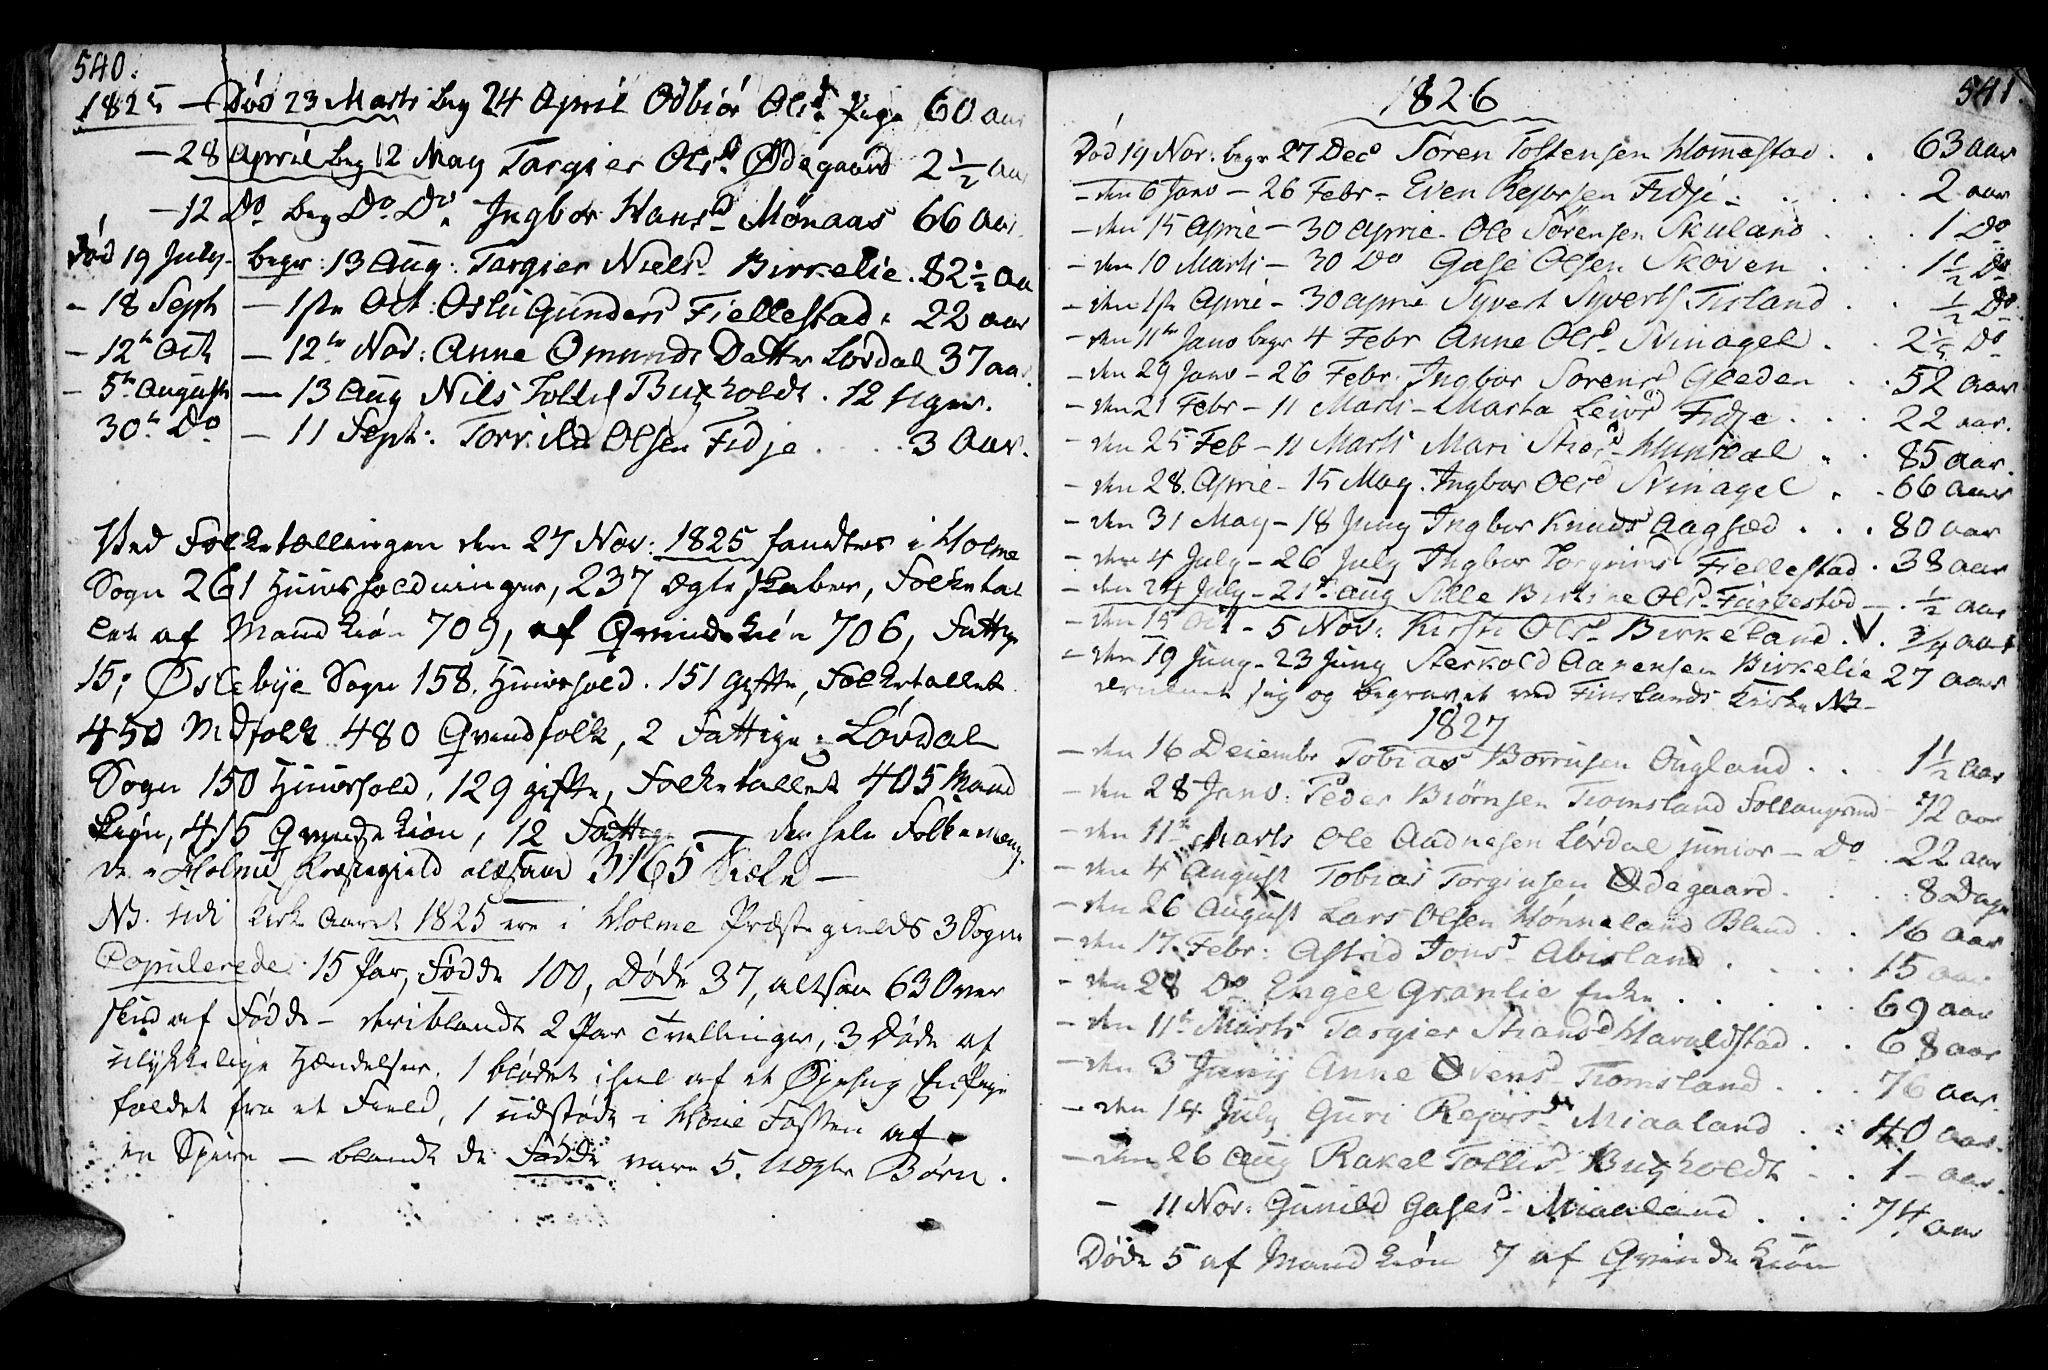 540.
1825 — Død 23 Marti beg 24 April Odbiør Olsd. Pige 60 aar
— 28 April beg 12 May Targier Olsd. Ødegaard 2 1/2 Aar
— 12 Do beg Do Do. Ingbor Hansd. Mønaas 66 Aar.
Død 19 July. begr: 13 Aug: Targier Nielsd. Birkelie. 82 1/2 Aar
— 18 Sept — 1ste Oct: Osld Gunders Fiellestad. 22 aar
— 12te Oct — 12te Nov: Anne Omunds Datter Lovdal 37 aar.
— 5te August — 13 Aug Nils Tollis Bugholdt. 12 uger.
30te Do — 11 Sept: Torkild Olsen Fidje . . . 3 Aar.
Ved Folketællingen den 27 Nov: 1825 fandtes i Holme
Sogn 261 Huusholdninger, 237 ægteskaber, Folketal
let af Mandkiøn 709, af Qvindekiøn 706, Fattige
15; Øslebye Sogn 158. Huushold. 151 gifte, Folketallet
450 Mdfolk 480 Qvindfolk, 2 Fattige; Løvdal
Sogn 150 Huushold, 129 gifte, Folketallet 405 Mand
kiøn, 415 Qvindekiøn, 12 Fattige — den hele Folkemeng
de i Holme Præstegield altsaa 3165 Siæle —
NB. udi Kirke Aaret 1825 ere i Holme Præstegields 3 Sogne
Copulerede 15 Par, Fødde 100, Døde 37, altsaa 63 Over
skud af Fødde — deriblandt 2 Par Tvillinger, 3 Døde af
ulykkelige Hændelser. 1 blødet ihiel af et Øxehug En Pige
faldet fra et Field, 1 udstødt i Høie Fossen af
en Spire — blandt de Fødde vare 5. Uægte Børn.
541.
1826
Død 19 Nov: begr 27 Decb Soren Tostensen Homestad . . 63 aar
— den 6 Janv — 26 Febr — Even Rejersen Fidje . . . 2 aar
— den 15 Aprie — 30 Aprie — Ole Sörensen Skuland . . . 1 Do
— den 10 Marti — 30 Do Gase Olsen Skoven . . . 1 1/2 Do
— den 1ste Aprie — 30 aprie Syvert Syverts Tisland . . 1/2 Do
— den 11te Janv begr 4 Febr Anne Olsd. Svinagel . . 2 1/2 Do
— den 29 Janv — 26 Febr. Ingbor Sorensd Gleeden . . 52 aar
— den 21 Febr — 11 Marti — Marta Leivsd Fidje . . . 22 aar.
— den 25 Feb — 11 Marti Mari Stiesd. Hunsdal . . 85 aar.
— den 28. Aprie — 15 May. Ingbor Olsd Svinagel . . 66 aar
— den 31 May — 18 Juny Ingbor Knuds Aagsæd . . . 80 aar
— den 4 July — 26 July Ingbor Torgrims Fiellestad . 38 aar
— den 24 July — 21de Aug Sille Birtine Olsd. Fuglestad — . 1/2 aar
— den 15 Oct — 5 Nov: Kirsti Olsd. Birkeland . V . 3/4 aar
— den 19 Juny — 23 Juny Sterkold Aanensen Birkelie 27 aar
druknet sig og begravet ved Finslands Kirke NB —
1827
— den 16 Deiembr Tobias Borrusen Øugland . . . 1 1/2 Aar
— den 28 Janv: Peder Biørnsen Tromsland Follaugsmd — 72 aar
— den 11te Marts Ole Aadnesen Lövdal junior — Do . 22 aar
— den 4 August Tobias Torginsen Ødegaard . . . 8 Dage
— den 26 August Lars Olsen Hønneland Blind . . 16 aar
— den 17. Febr: Astrid Jonsd. Abisland . . . . 15 aar
— den 28 Do Engel Granlie Enke . . . . . 69 aar
— den 11te Marti Targier Stiansd Haraldstad . . 68 aar
— den 3 Junij Anne Ovensd. Tromsland . . . 76 aar.
— den 14 July Guri Rejorsd. Miaaland . . : 40 aar.
— den 26 Aug Rakel Tollisd. Bugholdt — . 1 — aar.
— 11 Nov: Gunild Gasesd. Miaaland . . . : 74 aar
Døde 5 af Mandkiøn 7 af Qvindekiøn